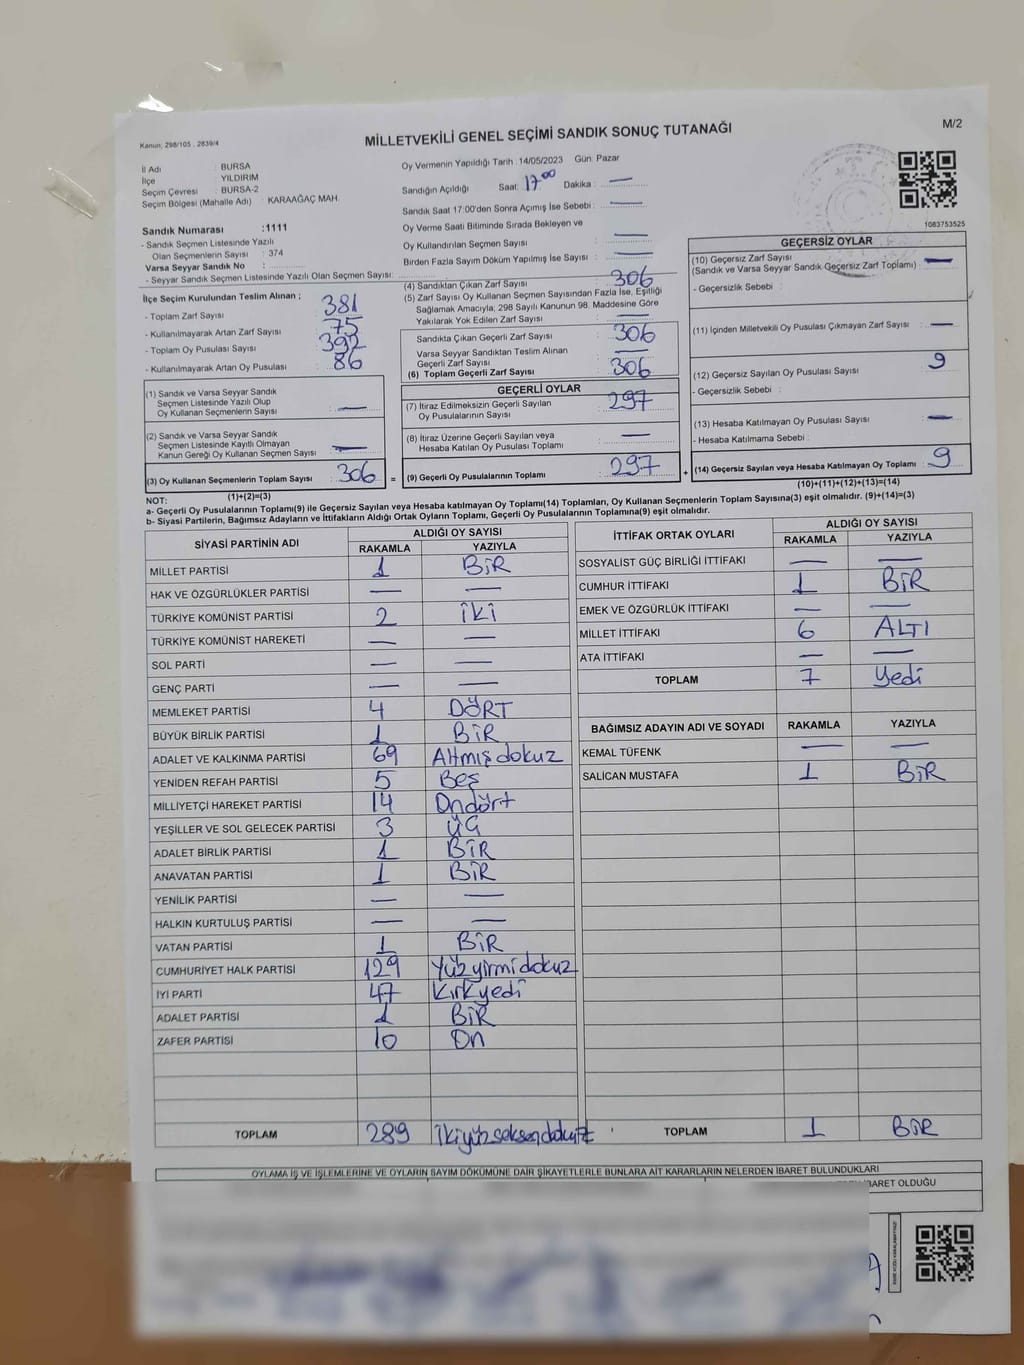 Kanun: 298/105 , 2839/4
MİLLETVEKİLİ GENEL SEÇİMİ SANDIK SONUÇ TUTANAĞI
M/2
İl Adı : BURSA
İlçe : YILDIRIM
Seçim Çevresi : BURSA-2
Seçim Bölgesi (Mahalle Adı) : KARAAĞAÇ MAH.
Sandık Numarası :1111
- Sandık Seçmen Listesinde Yazılı
Olan Seçmenlerin Sayısı : 374
Varsa Seyyar Sandık No :
- Seyyar Sandık Seçmen Listesinde Yazılı Olan Seçmen Sayısı:
Oy Vermenin Yapıldığı Tarih :14/05/2023 Gün: Pazar
Sandığın Açıldığı Saat: 17⁰⁰ Dakika : —
Sandık Saat 17:00'den Sonra Açımış İse Sebebi : —
Oy Verme Saati Bitiminde Sırada Bekleyen ve
Oy Kullandırılan Seçmen Sayısı : —
Birden Fazla Sayım Döküm Yapılmış İse Sayısı : —
1083753525
İlçe Seçim Kurulundan Teslim Alınan ;
- Toplam Zarf Sayısı : 381
- Kullanılmayarak Artan Zarf Sayısı : 75
- Toplam Oy Pusulası Sayısı : 392
- Kullanılmayarak Artan Oy Pusulası : 86
(1) Sandık ve Varsa Seyyar Sandık
Seçmen Listesinde Yazılı Olup
Oy Kullanan Seçmenlerin Sayısı : —
(2) Sandık ve Varsa Seyyar Sandık
Seçmen Listesinde Kayıtlı Olmayan
Kanun Gereği Oy Kullanan Seçmen Sayısı : —
(3) Oy Kullanan Seçmenlerin Toplam Sayısı : 306
(1)+(2)=(3)
(4) Sandıktan Çıkan Zarf Sayısı : 306
(5) Zarf Sayısı Oy Kullanan Seçmen Sayısından Fazla İse, Eşitliği
Sağlamak Amacıyla, 298 Sayılı Kanunun 98. Maddesine Göre
Yakılarak Yok Edilen Zarf Sayısı : —
Sandıkta Çıkan Geçerli Zarf Sayısı : 306
Varsa Seyyar Sandıktan Teslim Alınan
Geçerli Zarf Sayısı : —
(6) Toplam Geçerli Zarf Sayısı : 306
GEÇERLİ OYLAR
(7) İtiraz Edilmeksizin Geçerli Sayılan
Oy Pusulalarının Sayısı : 297
(8) İtiraz Üzerine Geçerli Sayılan veya
Hesaba Katılan Oy Pusulası Toplamı : —
= (9) Geçerli Oy Pusulalarının Toplamı : 297
GEÇERSİZ OYLAR
(10) Geçersiz Zarf Sayısı : —
(Sandık ve Varsa Seyyar Sandık Geçersiz Zarf Toplamı)
- Geçersizlik Sebebi :
(11) İçinden Milletvekili Oy Pusulası Çıkmayan Zarf Sayısı : —
(12) Geçersiz Sayılan Oy Pusulası Sayısı : 9
- Geçersizlik Sebebi :
(13) Hesaba Katılmayan Oy Pusulası Sayısı : —
- Hesaba Katılmama Sebebi :
+ (14) Geçersiz Sayılan veya Hesaba Katılmayan Oy Toplamı : 9
(10)+(11)+(12)+(13)=(14)
NOT:
a- Geçerli Oy Pusulalarının Toplamı(9) ile Geçersiz Sayılan veya Hesaba katılmayan Oy Toplamı(14) Toplamları, Oy Kullanan Seçmenlerin Toplam Sayısına(3) eşit olmalıdır. (9)+(14)=(3)
b- Siyasi Partilerin, Bağımsız Adayların ve İttifakların Aldığı Ortak Oyların Toplamı, Geçerli Oy Pusulalarının Toplamına(9) eşit olmalıdır.
SİYASİ PARTİNİN ADI ALDIĞI OY SAYISI
RAKAMLA YAZIYLA
MİLLET PARTİSİ 1 BİR
HAK VE ÖZGÜRLÜKLER PARTİSİ — —
TÜRKİYE KOMÜNİST PARTİSİ 2 iki
TÜRKİYE KOMÜNİST HAREKETİ — —
SOL PARTİ — —
GENÇ PARTİ — —
MEMLEKET PARTİSİ 4 DÖRT
BÜYÜK BİRLİK PARTİSİ 1 BİR
ADALET VE KALKINMA PARTİSİ 69 Altmış dokuz
YENİDEN REFAH PARTİSİ 5 Beş
MİLLİYETÇİ HAREKET PARTİSİ 14 Ondört
YEŞİLLER VE SOL GELECEK PARTİSİ 3 üç
ADALET BİRLİK PARTİSİ 1 BİR
ANAVATAN PARTİSİ 1 BİR
YENİLİK PARTİSİ — —
HALKIN KURTULUŞ PARTİSİ — —
VATAN PARTİSİ 1 BİR
CUMHURİYET HALK PARTİSİ 129 Yüzyirmidokuz
İYİ PARTİ 47 Kırkyedi
ADALET PARTİSİ 1 BİR
ZAFER PARTİSİ 10 On
TOPLAM 289 ikiyüzseksendokuz
İTTİFAK ORTAK OYLARI ALDIĞI OY SAYISI
RAKAMLA YAZIYLA
SOSYALİST GÜÇ BİRLİĞİ İTTİFAKI — —
CUMHUR İTTİFAKI 1 BİR
EMEK VE ÖZGÜRLÜK İTTİFAKI — —
MİLLET İTTİFAKI 6 ALTI
ATA İTTİFAKI — —
TOPLAM 7 Yedi
BAĞIMSIZ ADAYIN ADI VE SOYADI RAKAMLA YAZIYLA
KEMAL TÜFENK — —
SALİCAN MUSTAFA 1 BİR
TOPLAM 1 BİR
OYLAMA İŞ VE İŞLEMLERİNE VE OYLARIN SAYIM DÖKÜMÜNE DAİR ŞİKAYETLERLE BUNLARA AİT KARARLARIN NELERDEN İBARET BULUNDUKLARI
İBARET OLDUĞU